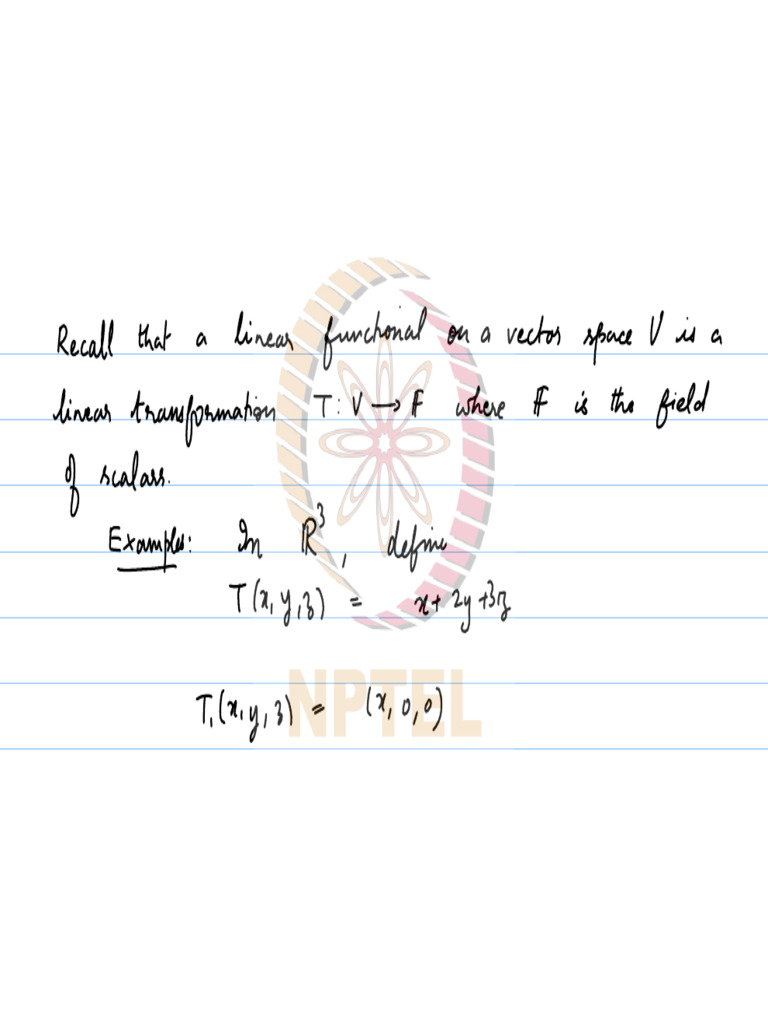 Recall that a linear functional on a vector space V is a
linear transformation T: V → 𝔽 where 𝔽 is the field
of scalars.
Examples: In ℝ³, define
T(x, y, z) = x + 2y + 3z
NPTEL
T₁(x, y, z) = (x, 0, 0)